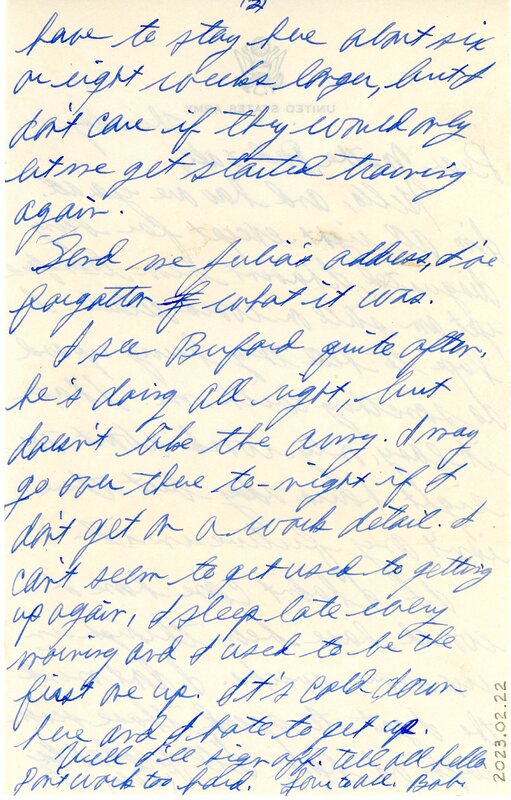 (2)
have to stay here about six
or eight weeks longer, but I
don't care if they would only
let me get started training
again.
Send me Julia's address, I've
forgotten what it was.
I see Buford quite often,
he's doing all right, but
doesn't like the army. I may
go over there to-night if I
don't get on a work detail. I
can't seem to get used to getting
up again, I sleep late every
morning and I used to be the
first one up. It's cold down
here and I hate to get up.
Well I'll sign off. tell all hello
Don't work too hard. Love to all. Bob.
UNITED STATES ARMY
2023.02.22